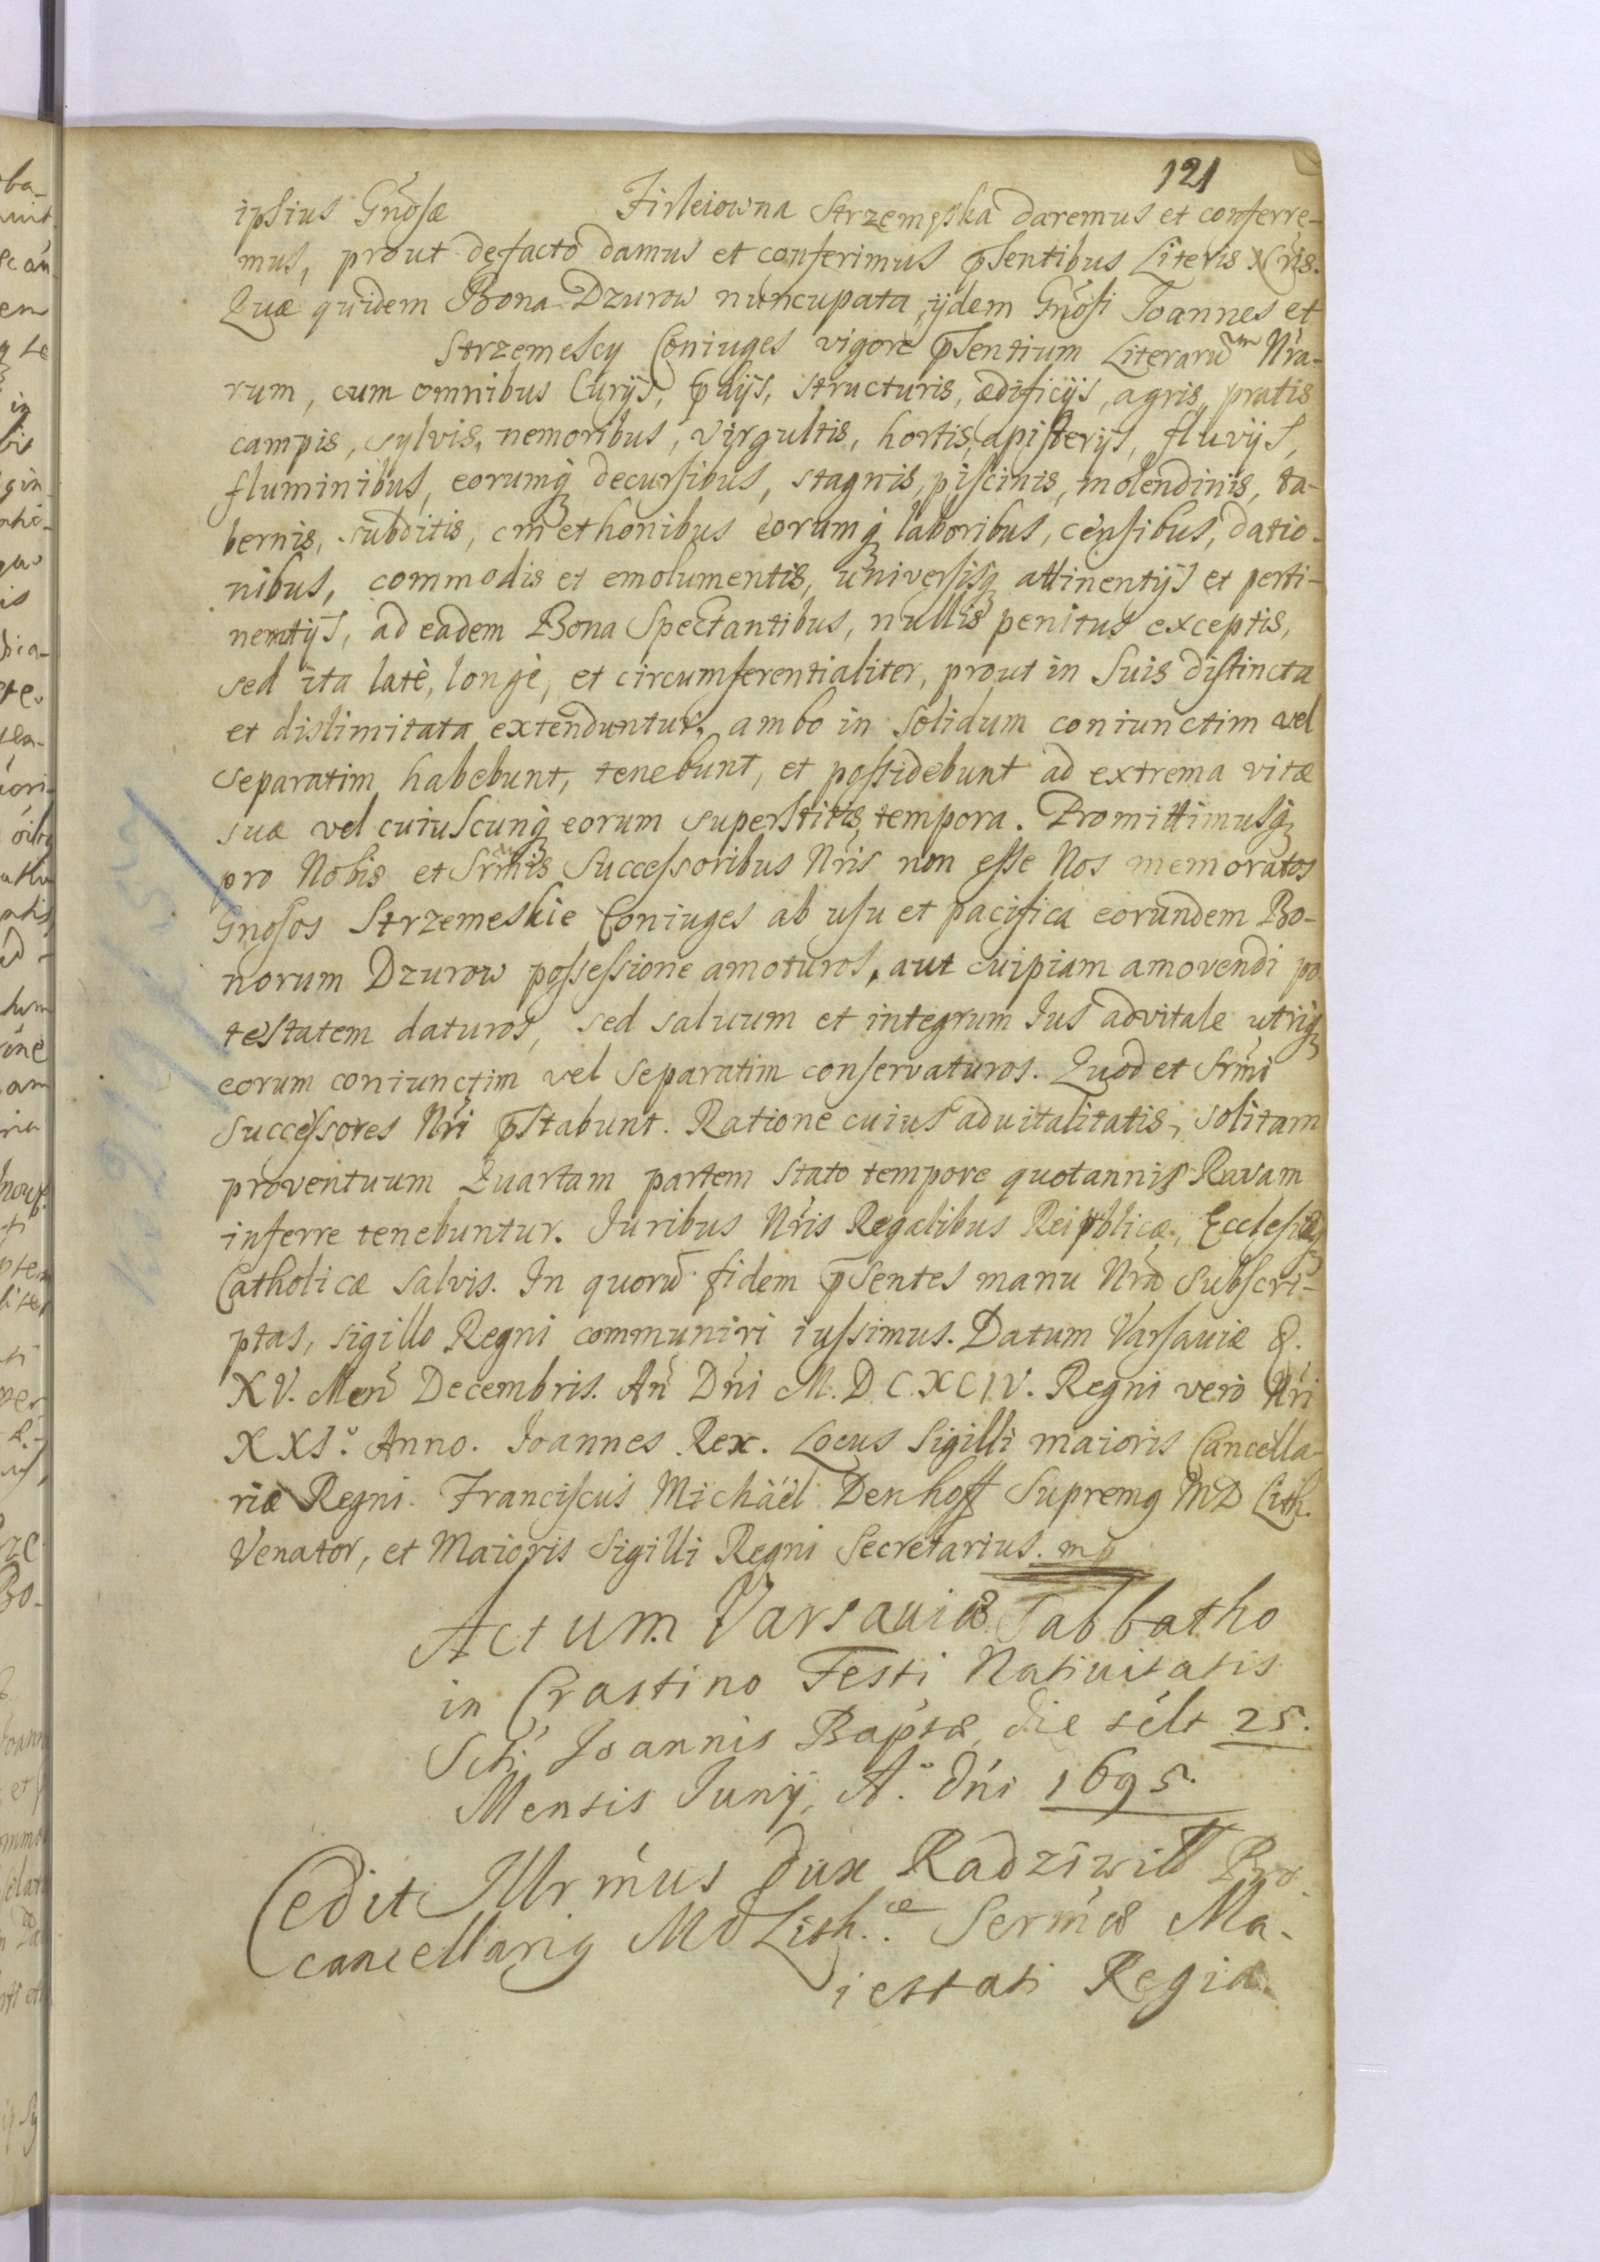 121
ipsius Gńosæ Firleiowna Strzemęska daremus et conferre-
mus, prout defacto damus et conferimus p̃sentibus Literis Nr̃is.
Quæ quidem Bona Dzurow nuncupata, ijdem Gńosi Joannes et
Strzemescy Coniuges vigore p̃sentium Literarũm Nr̃a-
rum, cum omnibus Curijs, p̃dijs, structuris, ædificijs, agris, pratis
campis, sylvis, nemoribus, virgultis, hortis, apisterijs, fluvijs,
fluminibus, eorumq́ decursibus, stagnis, piscinis, molendinis, ta-
bernis, subditis, cmethonibus eorumq́ laboribus, censibus, datio-
nibus, commodis et emolumentis, universisq́ attinentijs et perti-
nentijs, ad eadem Bona Spectantibus, nullis penitus exceptis,
sed ita latè, longè, et circumferentialiter, prout in suis distincta
et dislimitata extenduntur, ambo in solidum coniunctim vel
separatim habebunt, tenebunt, et possidebunt ad extrema vitæ
suæ vel cuiuscunq́ eorum superstitis tempora. Promittimusq́
pro Nobis et Srm̃is Successoribus Nr̃is non esse Nos memoratos
Gnosos Strzemeskie Coniuges ab usu et pacifica eorundem Bo-
norum Dzurow possessione amoturos, aut cuipiam amovendi po
testatem daturos, sed saluum et integrum Jus advitale utriq́
eorum coniunctim vel separatim conservaturos. Quod et Srm̃i
Successores Nr̃i p̃stabunt. Ratione cuius aduitalitatis, solitam
proventuum Quartam partem stato tempore quotannis Ravam
inferre tenebuntur. Juribus Nr̃is Regalibus Reipblicæ, Ecclesiæq́
Catholicæ salvis. In quorũ fidem p̃sentes manu Nr̃a Subscri-
ptas, sigillo Regni communiri iussimus. Datum Varsaviæ D.
XV. Meñ Decembris. Añ Dńi M.D.C.XCIV. Regni vero Nr̃i
XXI.º Anno. Joannes Rex. Locus Sigilli maioris Cancella-
riæ Regni. Franciscus Michäel Denhoff Supremq MD Lith.
Venator, et Maioris Sigilli Regni Secretarius. mp
Actum Varsauiæ Sabbatho
in Crastino Festi Natiuitatis
Scti Joannis Baptæ, die sclt 25.
Mensis Junij, A.º Dńi 1695.
Cedit Illrm̃us Dux Radziwill Pro-
cancellariq MD Lith.æ Serm̃æ Ma-
iestati Regiæ.